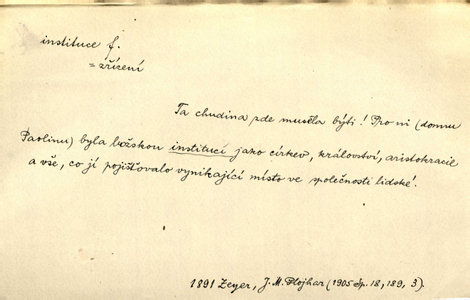 instituce f.
= zřízení
Ta chudina zde musela býti! Pro ni (donnu
Paolinu) byla božskou institucí jako církev, království, aristokracie
a vše, co jí pojišťovalo vynikající místo ve společnosti lidské.
1891 Zeyer, J. M. Plojhar (1905 Sp. 18, 189, 3).